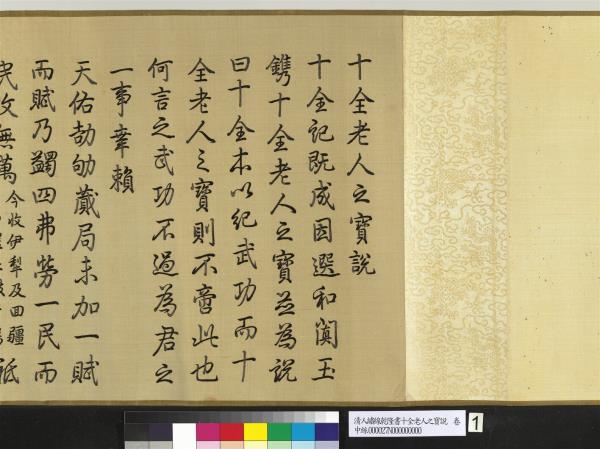 十全老人之寶說
十全記既成因選和闐玉
鐫十全老人之寶並為說
曰十全本以紀武功而十
全老人之寶則不啻此也
何言之武功不過為君之
一事幸賴
天佑劼劬蕆局未加一賦
而賦乃蠲四弗勞一民而
民收無萬今收伊犁及回疆
祗
清人繡線乾隆書十全老人之寶說 卷
中絲000027N000000000
1